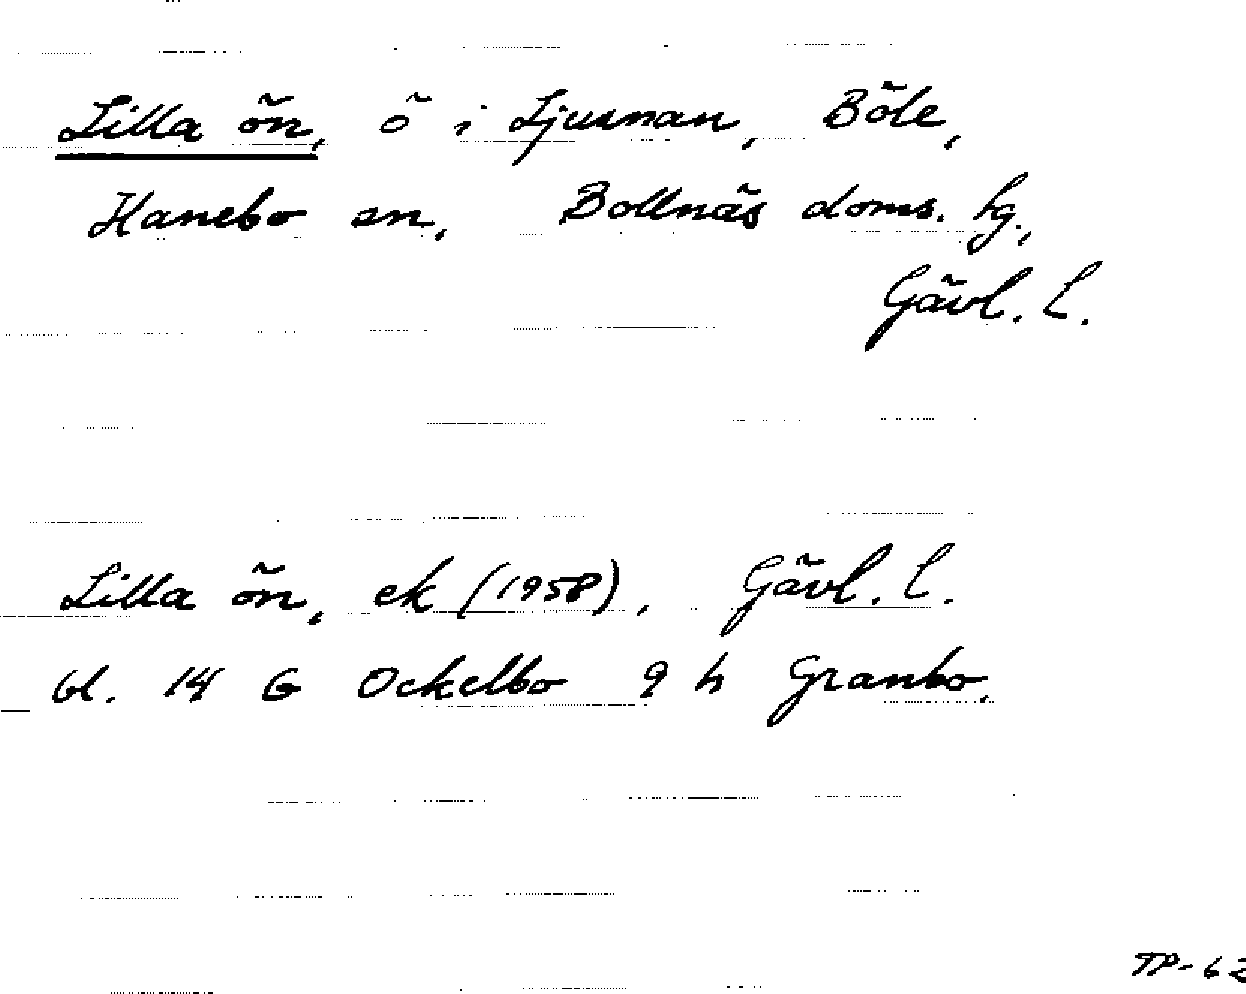 Lilla ön, ö i Ljusnan, Böle,
Hanebo sn, Bollnäs doms. hg.,
Gävl. l.
Lilla ön, ek (1958), Gävl. l.
bl. 14 G Ockelbo 9 h Granbo.
TP-62